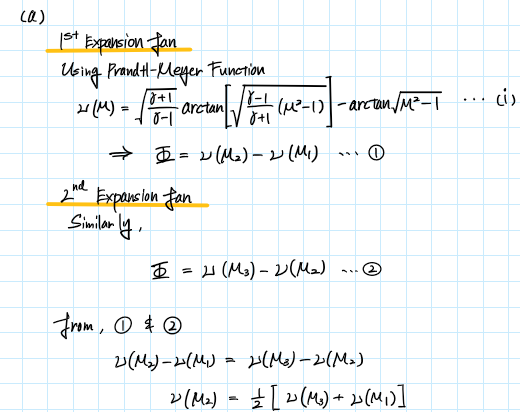 (a)
1st Expansion fan
Using Prandtl-Meyer Function
ν(M) = √((γ+1)/(γ-1)) arctan[√((γ-1)/(γ+1) (M²-1))] - arctan√(M²-1) ··· (i)
⇒ Φ = ν(M₂) - ν(M₁) ··· ①
2nd Expansion fan
Similarly,
Φ = ν(M₃) - ν(M₂) ··· ②
from, ① & ②
ν(M₂) - ν(M₁) = ν(M₃) - ν(M₂)
ν(M₂) = 1/2 [ν(M₃) + ν(M₁)]